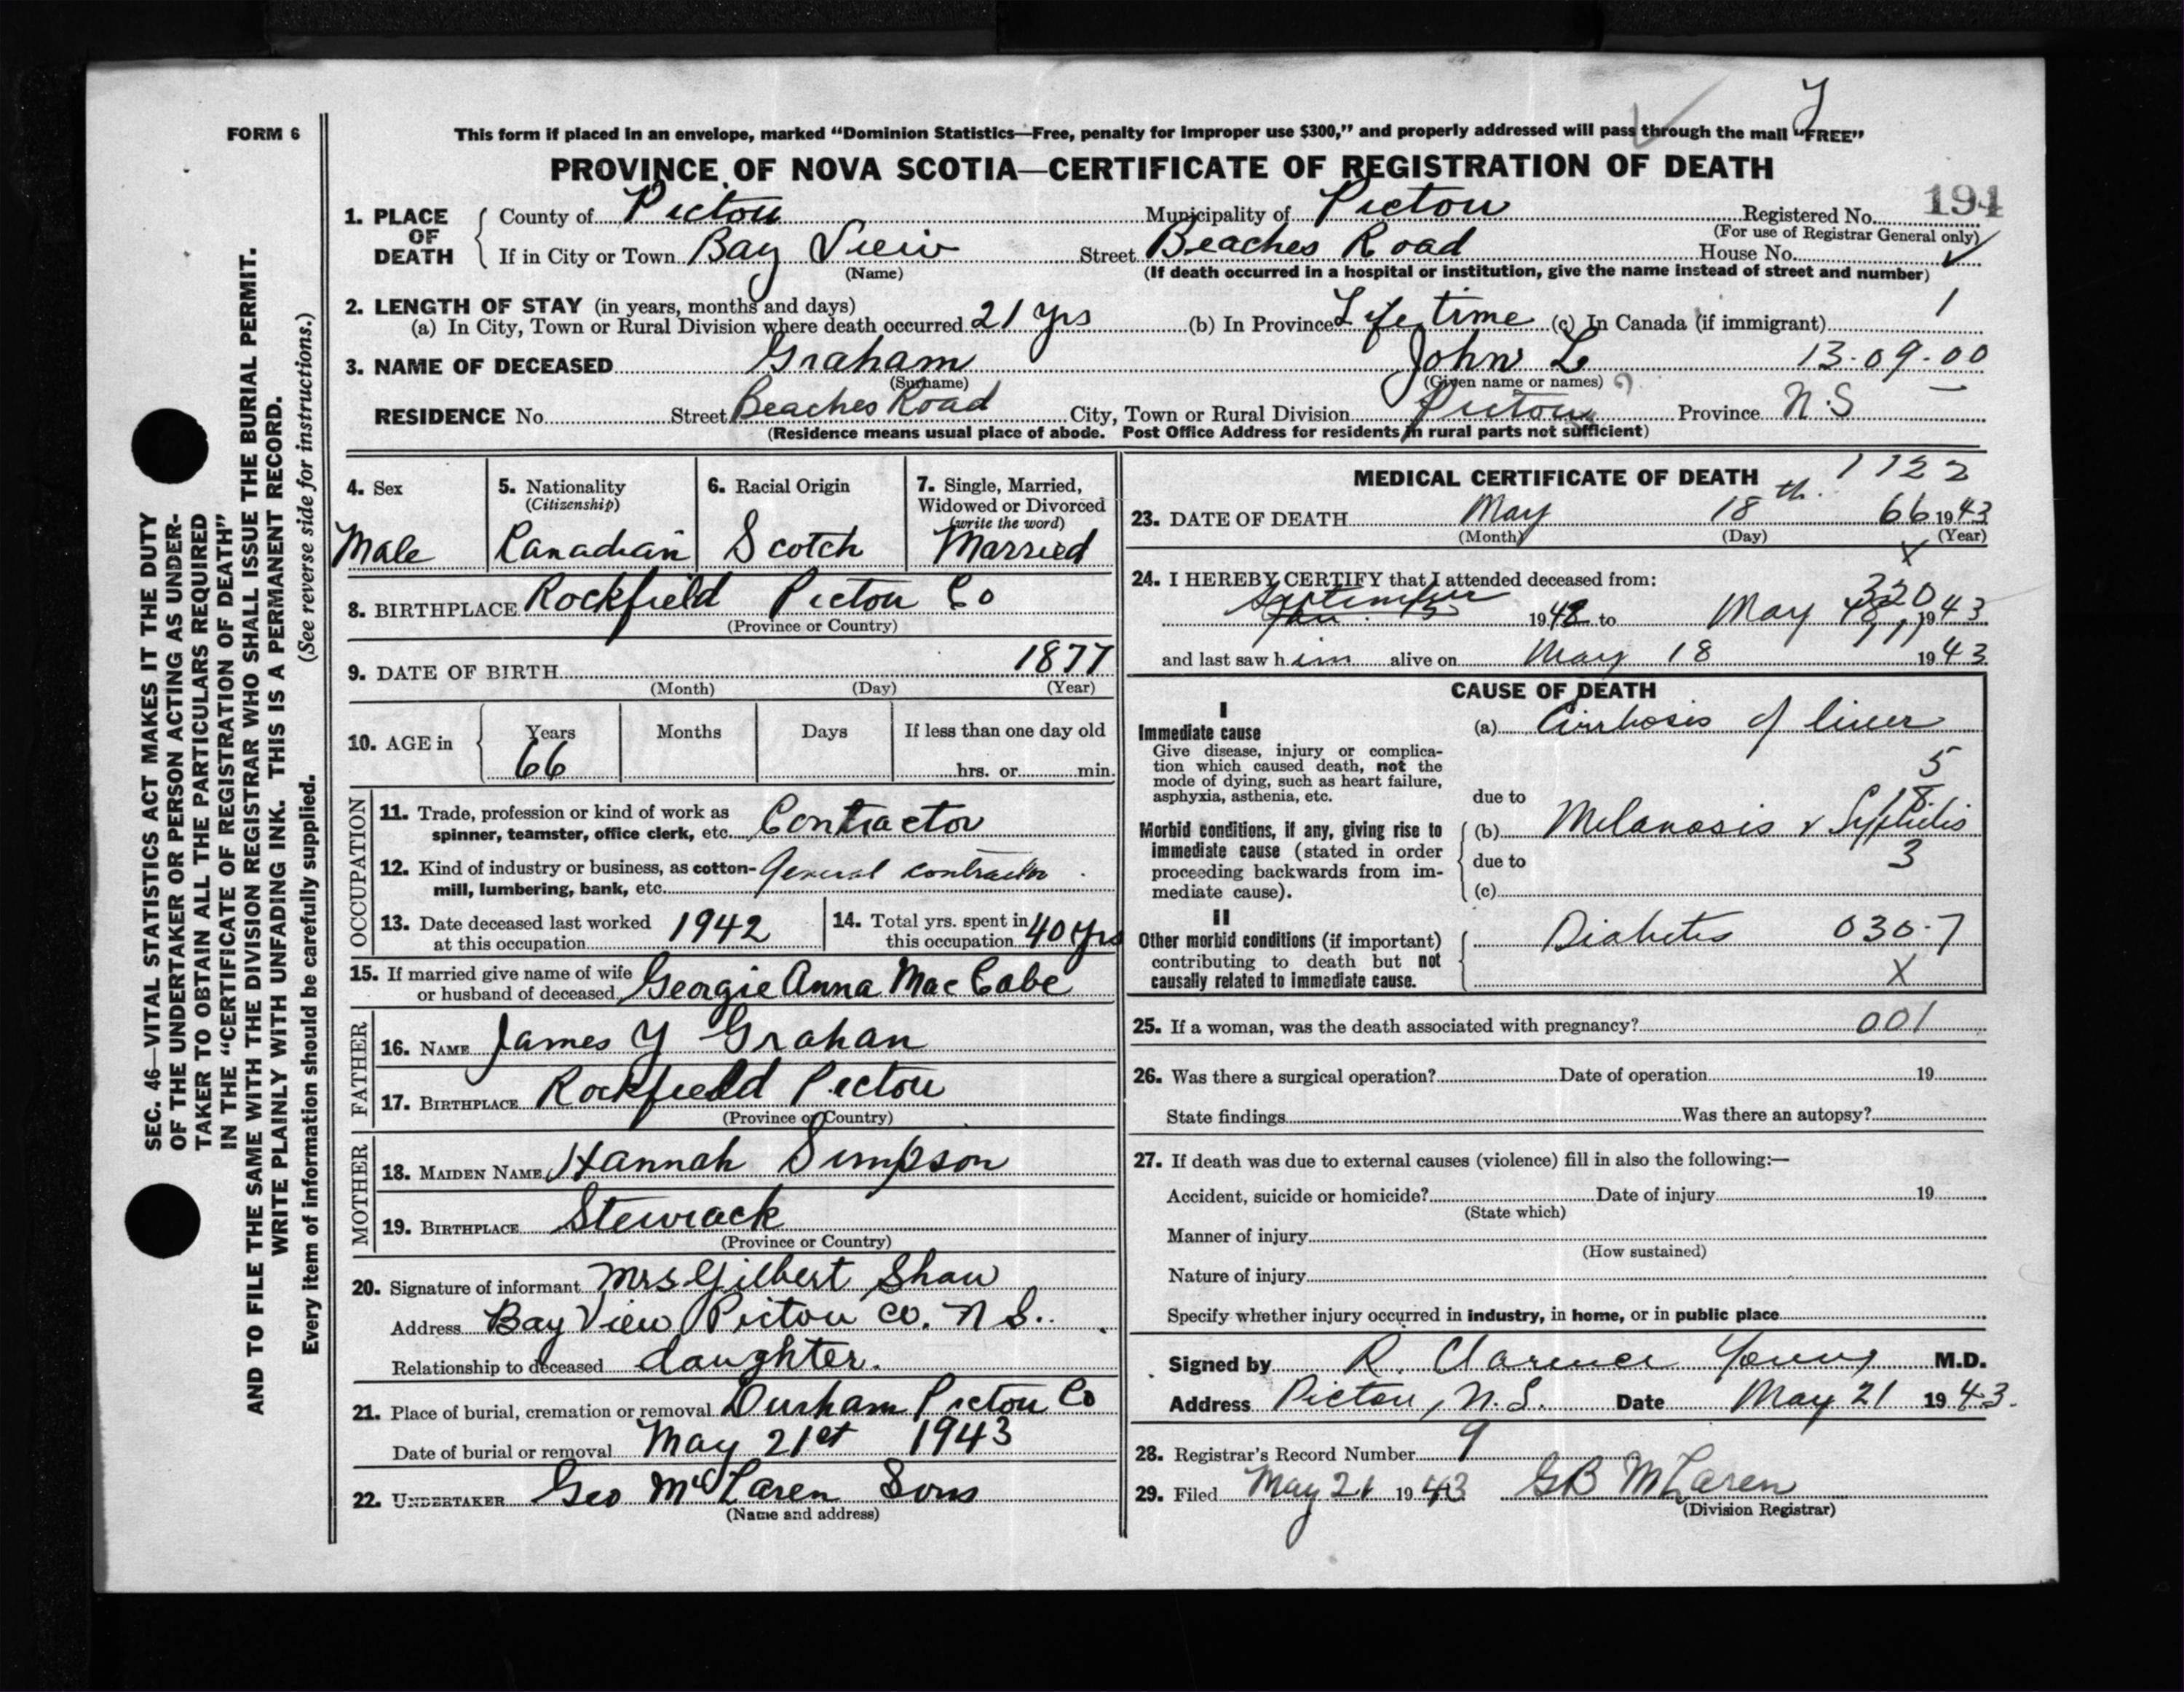 FORM 6
This form if placed in an envelope, marked “Dominion Statistics—Free, penalty for improper use $300,” and properly addressed will pass through the mail “FREE”
PROVINCE OF NOVA SCOTIA—CERTIFICATE OF REGISTRATION OF DEATH
194
1. PLACE OF DEATH County of Pictou Municipality of Pictou Registered No.
(For use of Registrar General only)
If in City or Town Bay View Street Beaches Road House No.
(Name) (If death occurred in a hospital or institution, give the name instead of street and number)
2. LENGTH OF STAY (in years, months and days)
(a) In City, Town or Rural Division where death occurred 21 yrs (b) In Province Life time (c) In Canada (if immigrant) 1
3. NAME OF DECEASED Graham John L 13-09-00
(Surname) (Given name or names) ?
RESIDENCE No. Street Beaches Road City, Town or Rural Division Pictou Province N.S
(Residence means usual place of abode. Post Office Address for residents in rural parts not sufficient)
4. Sex
Male
5. Nationality
(Citizenship)
Canadian
6. Racial Origin
Scotch
7. Single, Married,
Widowed or Divorced
(write the word)
Married
8. BIRTHPLACE Rockfield Pictou Co
(Province or Country)
9. DATE OF BIRTH 1877
(Month) (Day) (Year)
10. AGE in Years Months Days If less than one day old
66 hrs. or min.
OCCUPATION
11. Trade, profession or kind of work as
spinner, teamster, office clerk, etc. Contractor
12. Kind of industry or business, as cotton-
mill, lumbering, bank, etc. General contractor
13. Date deceased last worked
at this occupation 1942
14. Total yrs. spent in
this occupation 40 yrs
15. If married give name of wife
or husband of deceased Georgie Anna MacCabe
FATHER
16. NAME James Y Grahan
17. BIRTHPLACE Rockfield Pictou
(Province or Country)
MOTHER
18. MAIDEN NAME Hannah Simpson
19. BIRTHPLACE Stewrack
(Province or Country)
20. Signature of informant Mrs Gilbert Shaw
Address Bay View Pictou Co. N S.
Relationship to deceased daughter.
21. Place of burial, cremation or removal Durham Pictou Co
Date of burial or removal May 21st 1943
22. UNDERTAKER Geo McLaren Sons
(Name and address)
MEDICAL CERTIFICATE OF DEATH 1122
23. DATE OF DEATH May 18th. 66 1943
(Month) (Day) (Year)
X
24. I HEREBY CERTIFY that I attended deceased from:
320
September 15 1942 to May 18, 1943
and last saw him alive on May 18 1943
CAUSE OF DEATH
I
Immediate cause
Give disease, injury or complica-
tion which caused death, not the
mode of dying, such as heart failure,
asphyxia, asthenia, etc.
(a) Cirrhosis of liver
5
due to
18.
Morbid conditions, if any, giving rise to
immediate cause (stated in order
proceeding backwards from im-
mediate cause).
(b) Melanosis & Syphilis
due to 3
(c)
II
Other morbid conditions (if important)
contributing to death but not
causally related to immediate cause.
Diabetes 030-7
X
25. If a woman, was the death associated with pregnancy? 001
26. Was there a surgical operation? Date of operation 19
State findings Was there an autopsy?
27. If death was due to external causes (violence) fill in also the following:—
Accident, suicide or homicide? Date of injury 19
(State which)
Manner of injury
(How sustained)
Nature of injury
Specify whether injury occurred in industry, in home, or in public place
Signed by R. Clarence Young M.D.
Address Pictou, N.S. Date May 21 1943.
28. Registrar's Record Number 9
29. Filed May 21 1943 GB McLaren
(Division Registrar)
SEC. 46—VITAL STATISTICS ACT MAKES IT THE DUTY
OF THE UNDERTAKER OR PERSON ACTING AS UNDER-
TAKER TO OBTAIN ALL THE PARTICULARS REQUIRED
IN THE “CERTIFICATE OF REGISTRATION OF DEATH”
AND TO FILE THE SAME WITH THE DIVISION REGISTRAR WHO SHALL ISSUE THE BURIAL PERMIT.
WRITE PLAINLY WITH UNFADING INK. THIS IS A PERMANENT RECORD.
Every item of information should be carefully supplied. (See reverse side for instructions.)